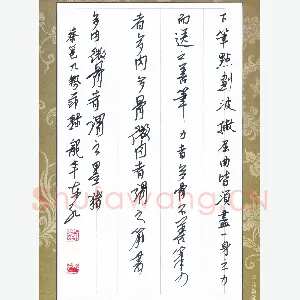 下筆點劃波撇屈曲皆須盡一身之力
而送之善筆力者多骨不善筆力
者多肉多骨微肉者謂之筋書
多肉微骨者謂之墨猪
龍年